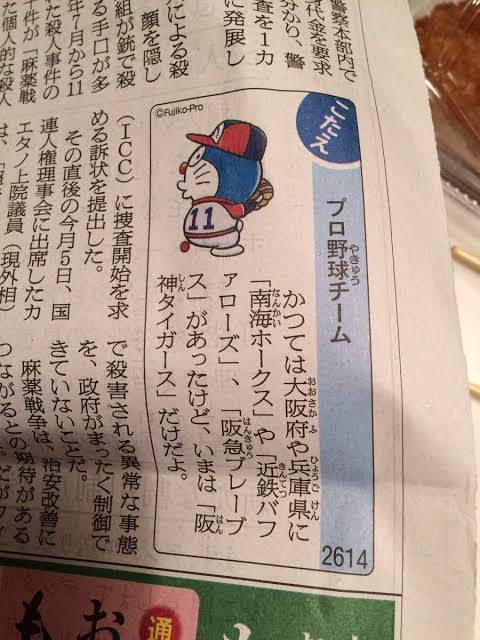 こたえ
プロ野球チーム
やきゅう
かつては大阪府や兵庫県に
おおさかふ
ひょうごけん
「南海ホークス」や「近鉄バフ
なんかい
きんてつ
ァローズ」、「阪急ブレーブ
はんきゅう
ス」があったけど、いまは「阪
はん
神タイガース」だけだよ。
しん
2614
©Fujiko-Pro
11
警察本部内で
代金を要求
分かり、警
査を1カ
に発展し
による殺
顔を隠し
組が銃で殺
る手口が多
年7月から11
た殺人事件の
十件が「麻薬戦
た個人的な殺人
(ICC)に捜査開始を求
める訴状を提出した。
その直後の今月5日、国
連人権理事会に出席したカ
エタノ上院議員(現外相)
で殺害される異常な事態
を、政府がまったく制御で
きていないことだ。
麻薬戦争は、治安改善に
つながるとの期待がある
通
お
も